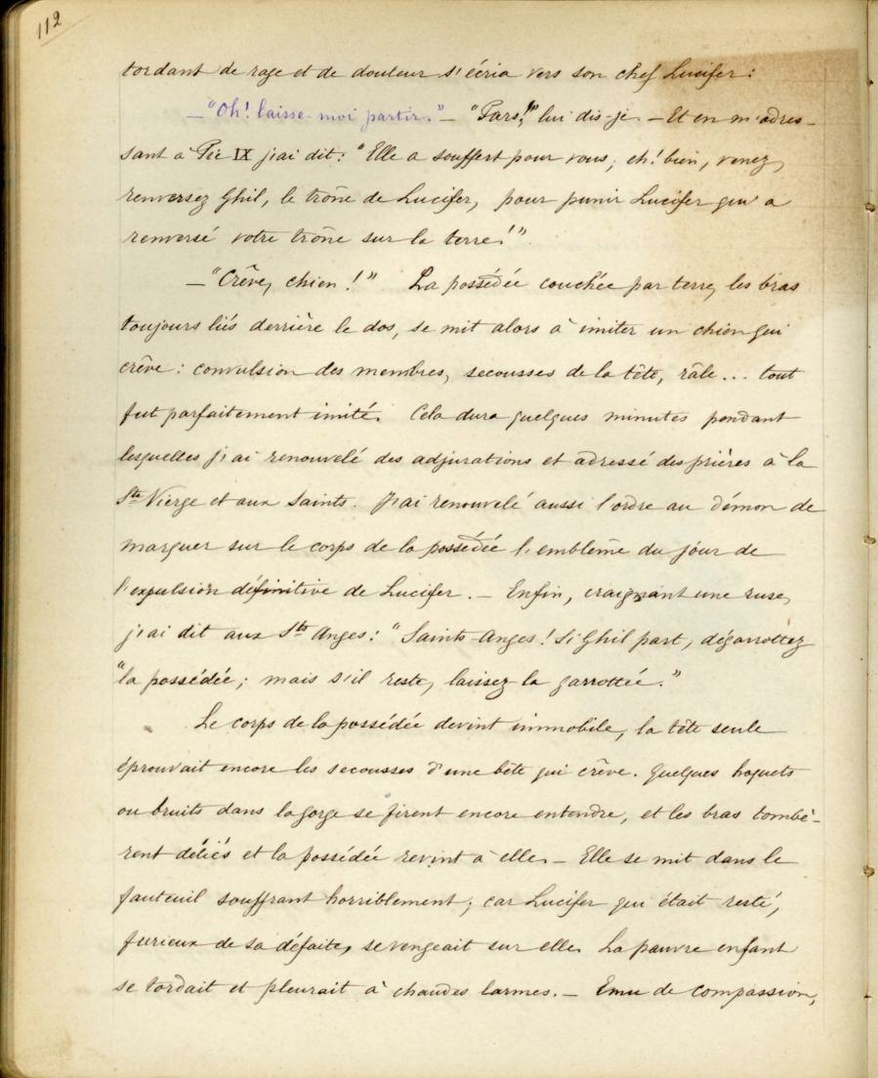 112
tordant de rage et de douleur s'écria vers son chef Lucifer :
— "Oh! laisse-moi partir." — "Pars!" lui dis-je. — Et en m'adres-
sant à Pie IX j'ai dit : "Elle a souffert pour vous, eh! bien, venez,
renversez Ghil, le trône de Lucifer, pour punir Lucifer qui a
renversé votre trône sur la terre!"
— "Crêve, chien!" La possédée couchée par terre, les bras
toujours liés derrière le dos, se mit alors à imiter un chien qui
crêve : convulsion des membres, secousses de la tête, râle... tout
fut parfaitement imité. Cela dura quelques minutes pendant
lesquelles j'ai renouvelé des adjurations et adressé des prières à la
Ste Vierge et aux Saints. J'ai renouvelé aussi l'ordre au démon de
marquer sur le corps de la possédée l'emblème du jour de
l'expulsion définitive de Lucifer. — Enfin, craignant une ruse,
j'ai dit aux Sts Anges : "Saints Anges! Si Ghil part, dégarrottez
"la possédée; mais s'il reste, laissez-la garrottée."
Le corps de la possédée devint immobile, la tête seule
éprouvait encore les secousses d'une bête qui crêve. Quelques hoquets
ou bruits dans la gorge se firent encore entendre, et les bras tombè-
rent déliés et la possédée revint à elle. — Elle se mit dans le
fauteuil souffrant horriblement; car Lucifer qui était resté,
furieux de sa défaite, se vengeait sur elle. La pauvre enfant
se tordait et pleurait à chaudes larmes. — Emu de compassion,